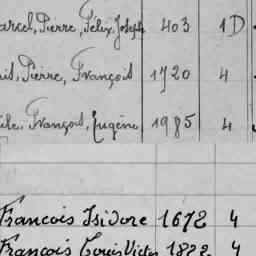 Marcel, Pierre, Félix, Joseph 403 1 D
Pierre, François 1720 4
François, Eugène 1985 4
François Isidore 1672 4
François Louis Victor 1822 4